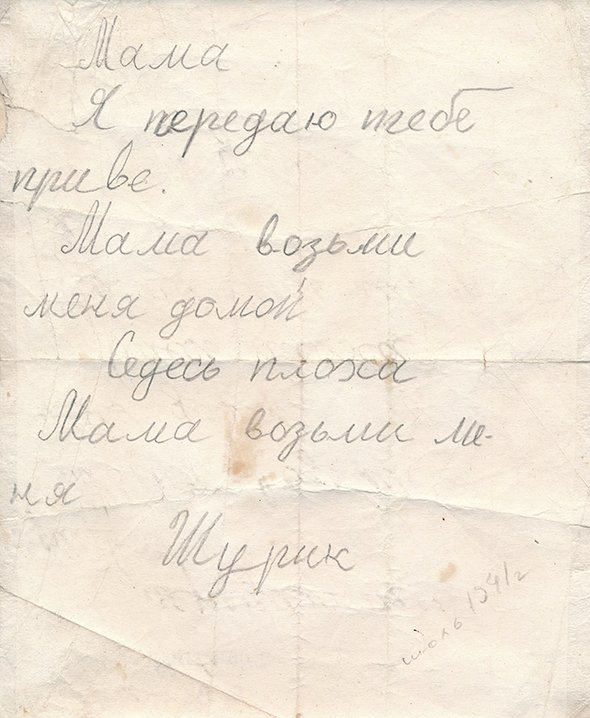 Мама
Я передаю тебе
приве.
Мама возьми
меня домой
Седесь плоха
Мама возьми ме-
ня
Шурик
июль 1941г